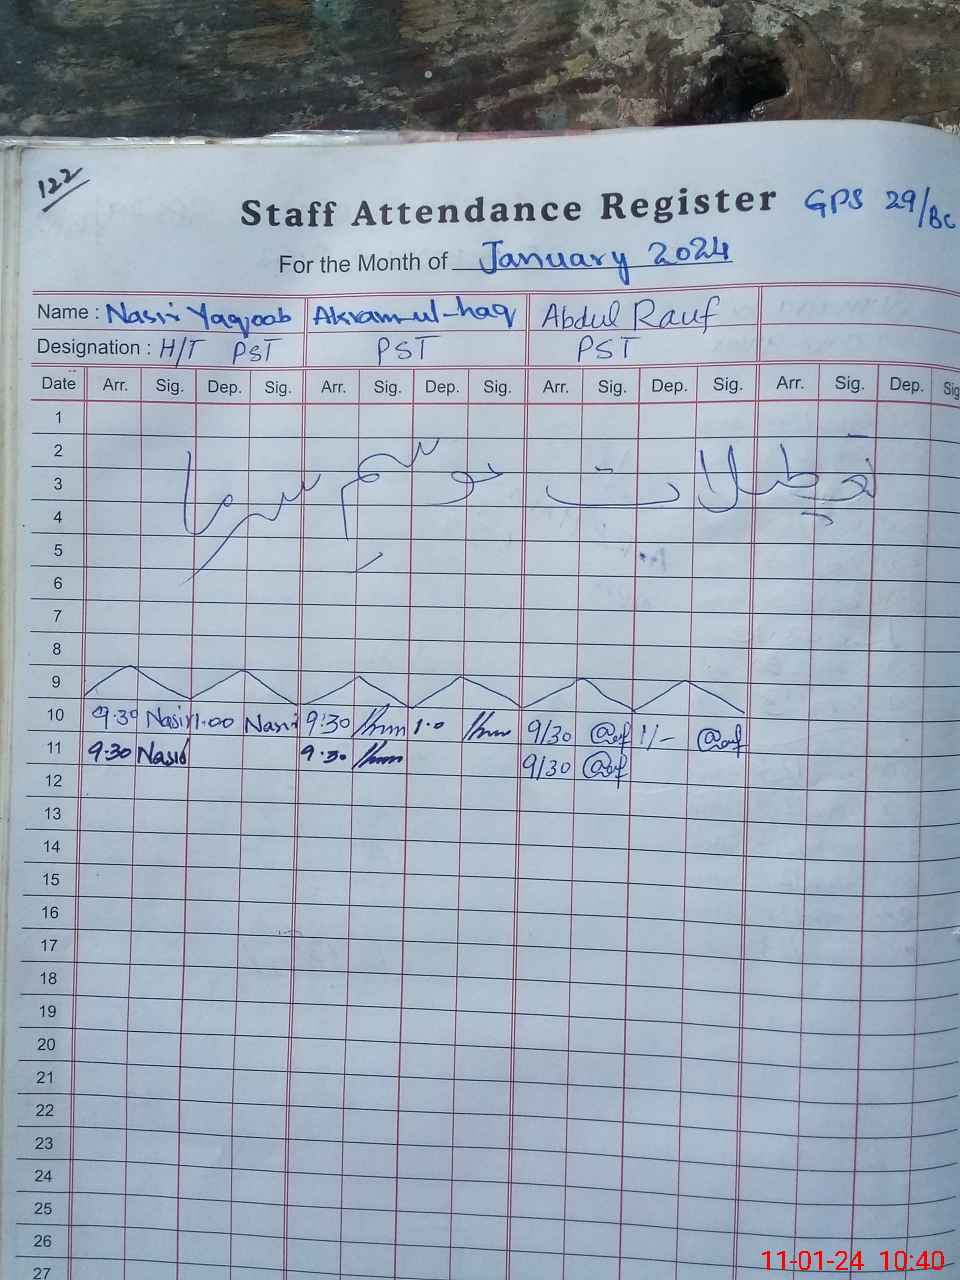 122
Staff Attendance Register GPS 29/BC
For the Month of January 2024
Name : Nasir Yaqoob Akram-ul-haq Abdul Rauf
Designation : H/T PST PST PST
Date Arr. Sig. Dep. Sig. Arr. Sig. Dep. Sig. Arr. Sig. Dep. Sig. Arr. Sig. Dep. Sig
1
2
3
تعطیلات موسم سرما
4
5
6
7
8
9
10 9.30 Nasir 1.00 Nasir 9:30 1.0 9/30 1/-
11 9.30 Nasir 9.30 9/30
12
13
14
15
16
17
18
19
20
21
22
23
24
25
26
27
11-01-24 10:40